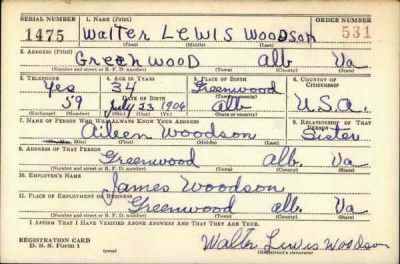 SERIAL NUMBER 1. NAME (Print) ORDER NUMBER
1475 Walter Lewis Woodson 531
(First) (Middle) (Last)
2. ADDRESS (Print)
Greenwood Alb Va
(Number and street or R. F. D. number) (Town) (County) (State)
3. TELEPHONE 4. AGE IN YEARS 5. PLACE OF BIRTH 6. COUNTRY OF CITIZENSHIP
Yes 34 Greenwood
DATE OF BIRTH (Town or county)
59 July 23 1906 Alb U.S.A.
(Exchange) (Number) (Mo.) (Day) (Yr.) (State or country)
7. NAME OF PERSON WHO WILL ALWAYS KNOW YOUR ADDRESS 8. RELATIONSHIP OF THAT PERSON
Aileen Woodson Sister
(First) (Middle) (Last)
9. ADDRESS OF THAT PERSON
Greenwood Alb. Va
(Number and street or R. F. D. number) (Town) (County) (State)
10. EMPLOYER'S NAME
James Woodson
11. PLACE OF EMPLOYMENT OR BUSINESS
Greenwood alb. Va
(Number and street or R. F. D. number) (Town) (County) (State)
I AFFIRM THAT I HAVE VERIFIED ABOVE ANSWERS AND THAT THEY ARE TRUE.
REGISTRATION CARD
D. S. S. Form 1 (over) Walter Lewis Woodson
(Registrant's signature)